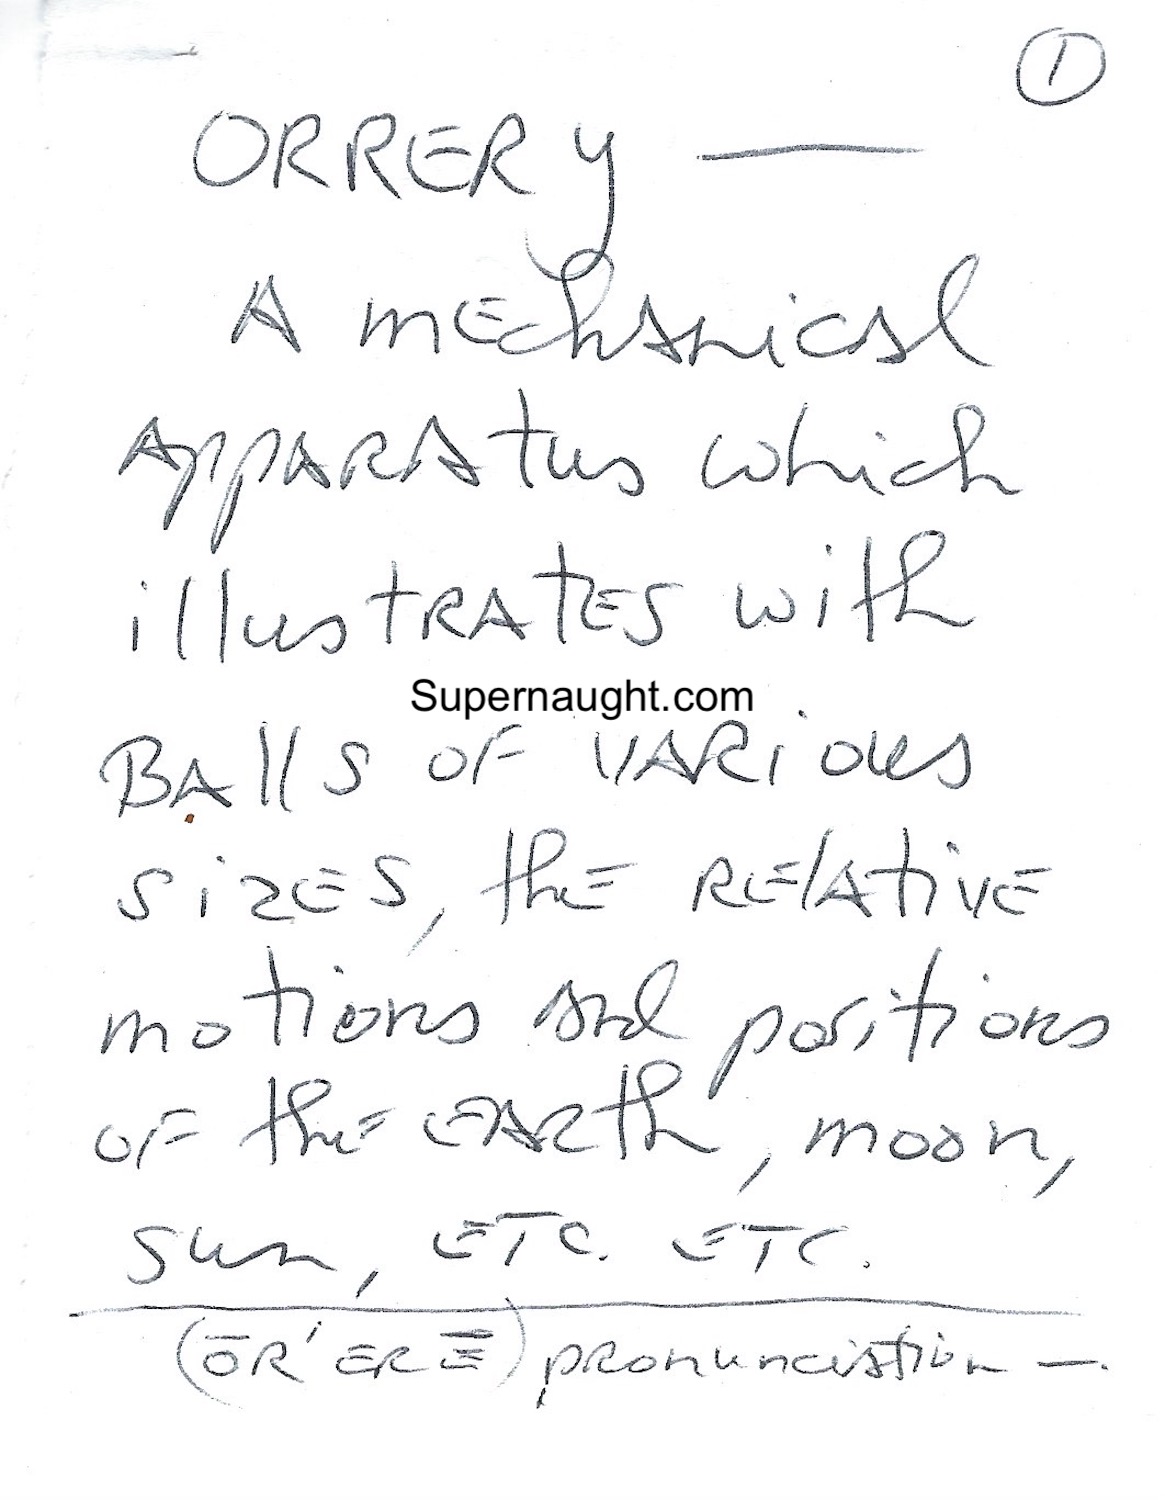 1
ORRERY —
A mechanical
apparatus which
illustrates with
Supernaught.com
Balls of various
sizes, the relative
motions and positions
of the earth, moon,
sun, ETC. ETC.
(ōR' ER Ē) pronunciation —.